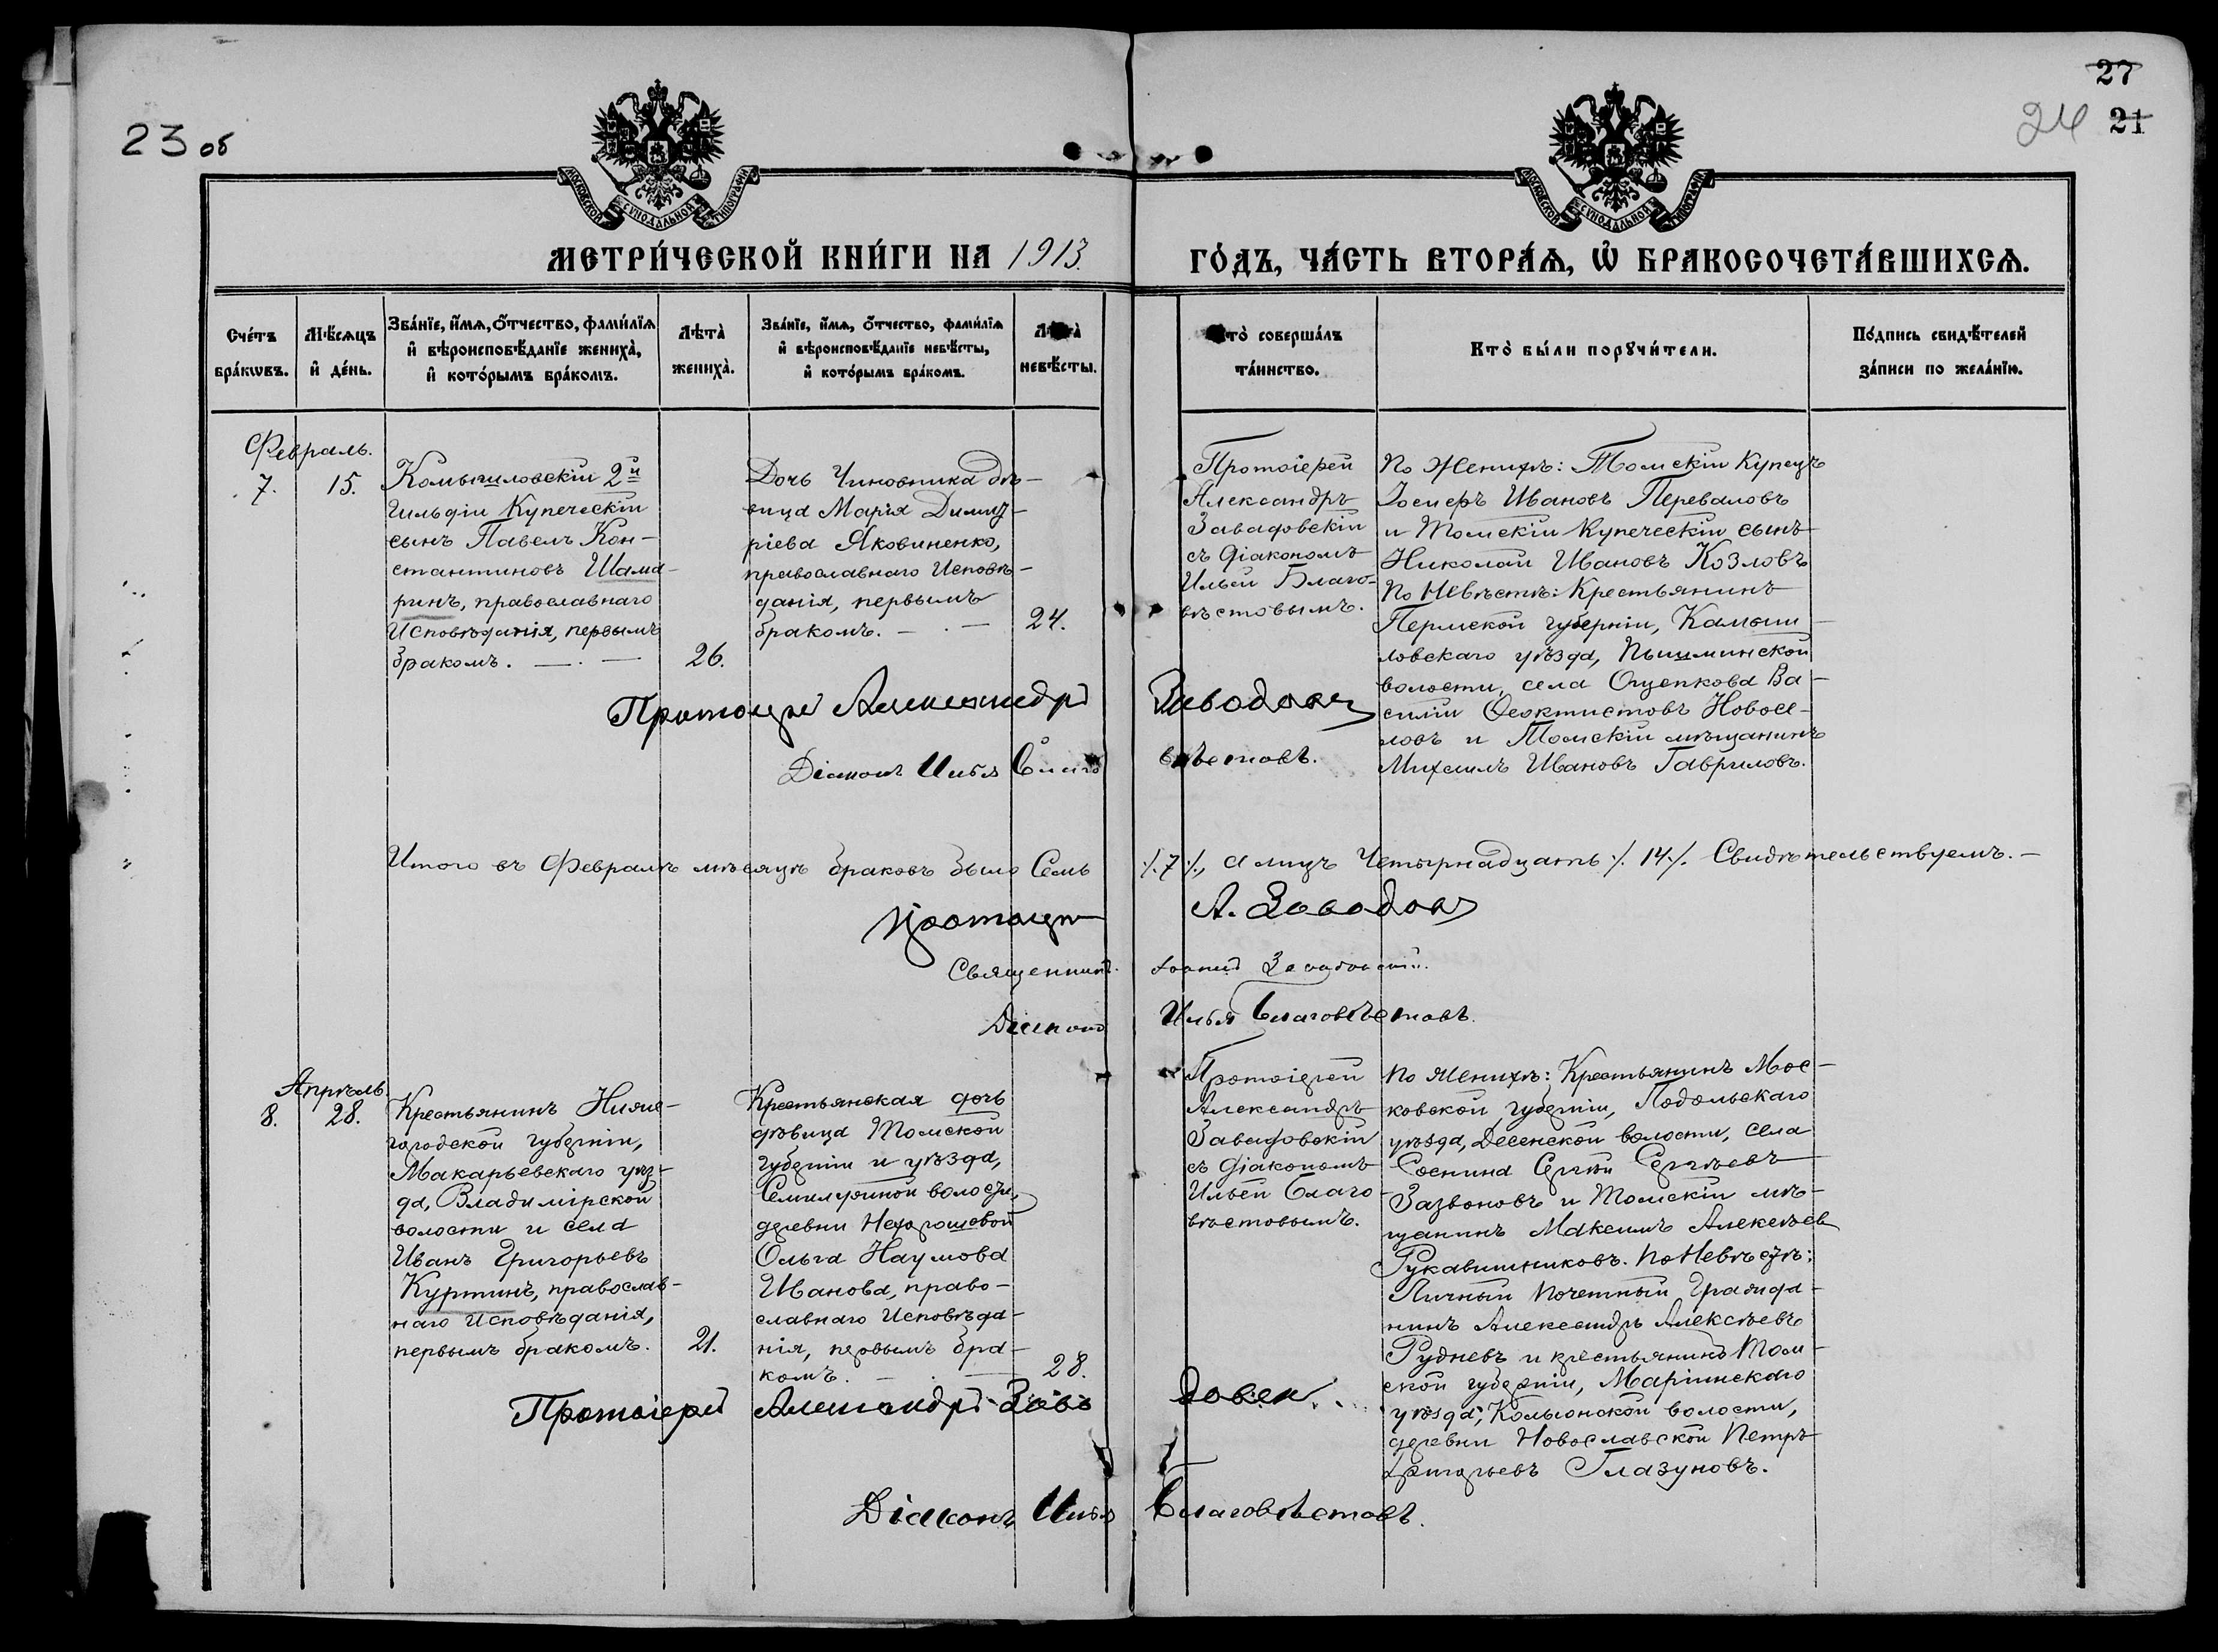 27
23 об
24 21
МОСКОВСКОЙ СѴНОДАЛЬНОЙ ТИПОГРАФІИ
МОСКОВСКОЙ СѴНОДАЛЬНОЙ ТИПОГРАФІИ
МЕТРИ́ЧЕСКОЙ КНИ́ГИ НА 1913.
ГО́ДЪ, ЧА́СТЬ ВТОРА́Ѧ, Ѡ҆ БРАКОСОЧЕТА́ВШИХСѦ.
Сче́тъ
бра́кѡвъ.
Мѣ́сѧцъ
и҆ де́нь.
Зва́нїе, и҆́мѧ, ѻ҆́тчество, фами́лїѧ
и҆ вѣроисповѣ́данїе жениха̀,
и҆ кото́рымъ бра́комъ.
Лѣта̀
жениха̀.
Зва́нїе, и҆́мѧ, ѻ҆́тчество, фами́лїѧ
и҆ вѣроисповѣ́данїе невѣ́сты,
и҆ кото́рымъ бра́комъ.
Лѣта̀
невѣ́сты.
Кто̀ соверша́лъ
та́инство.
Кто̀ бы́ли порꙋчи́тели.
По́дпись свидѣ́телей
за́писи по жела́нїю.
Февраль.
7. 15.
Комышловскій 2й
Гильдіи Купеческій
сынъ Павелъ Кон-
стантиновъ Шама-
ринъ, православнаго
Исповѣданія, первымъ
бракомъ. — . —
26.
Дочь Чиновника дѣ-
вица Марія Димит-
ріева Яковиненко,
православнаго Исповѣ-
данія, первымъ
бракомъ. — . —
24.
Протоіерей
Александръ
Завадовскій
съ діакономъ
Ильей Благо-
вѣстовымъ.
По Женихѣ: Томскій Купецъ
Іосифъ Ивановъ Переваловъ
и Томскій Купеческій сынъ
Николай Ивановъ Козловъ
По Невѣстѣ: Крестьянинъ
Пермской губерніи, Камыш-
ловскаго уѣзда, Пышминской
волости, села Ощепкова Ва-
силій Феоктистовъ Новосе-
ловъ и Томскій мѣщанинъ
Михаилъ Ивановъ Гавриловъ.
Протоіерей Александръ Заводовск
Діаконъ Илья Благовѣстовъ.
Итого въ Февралѣ мѣсяцѣ браковъ было Семь ./.7./., а лицъ Четырнадцать ./. 14./. Свидѣтельствуемъ. —
Протоіер А. Заводов
Священникъ Іоаннъ Завадовскій.
Діаконъ Илья Благовѣстовъ.
Апрѣль.
8. 28.
Крестьянинъ Ниже-
городской губерніи,
Макарьевскаго уѣз-
да, Владимірской
волости и села
Иванъ Григорьевъ
Куртинъ, православ-
наго Исповѣданія,
первымъ бракомъ.
21.
Крестьянская дочь
дѣвица Томской
губерніи и уѣзда,
Семилужной волости,
деревни Нехорошевой
Ольга Наумова
Иванова, право-
славнаго Исповѣда-
нія, первымъ бра-
комъ. — . —
28.
Протоіерей
Александръ
Завадовскій
съ діакономъ
Ильей Благо-
вѣстовымъ.
По Женихѣ: Крестьянинъ Мос-
ковской губерніи, Подольскаго
уѣзда, Десенской волости, села
Соснина Сергѣй Сергѣевъ
Зазвоновъ и Томскій мѣ-
щанинъ Максимъ Алексѣев
Рукавишниковъ. По Невѣстѣ:
Личный Почетный Гражда-
нинъ Александръ Алексѣевъ
Рудневъ и крестьянинъ Том-
ской губерніи, Маріинскаго
уѣзда, Колыонской волости,
деревни Новославской Петръ
Григорьевъ Глазуновъ.
Протоіерей Александръ Заводовск.
Діаконъ Илья Благовѣстовъ.